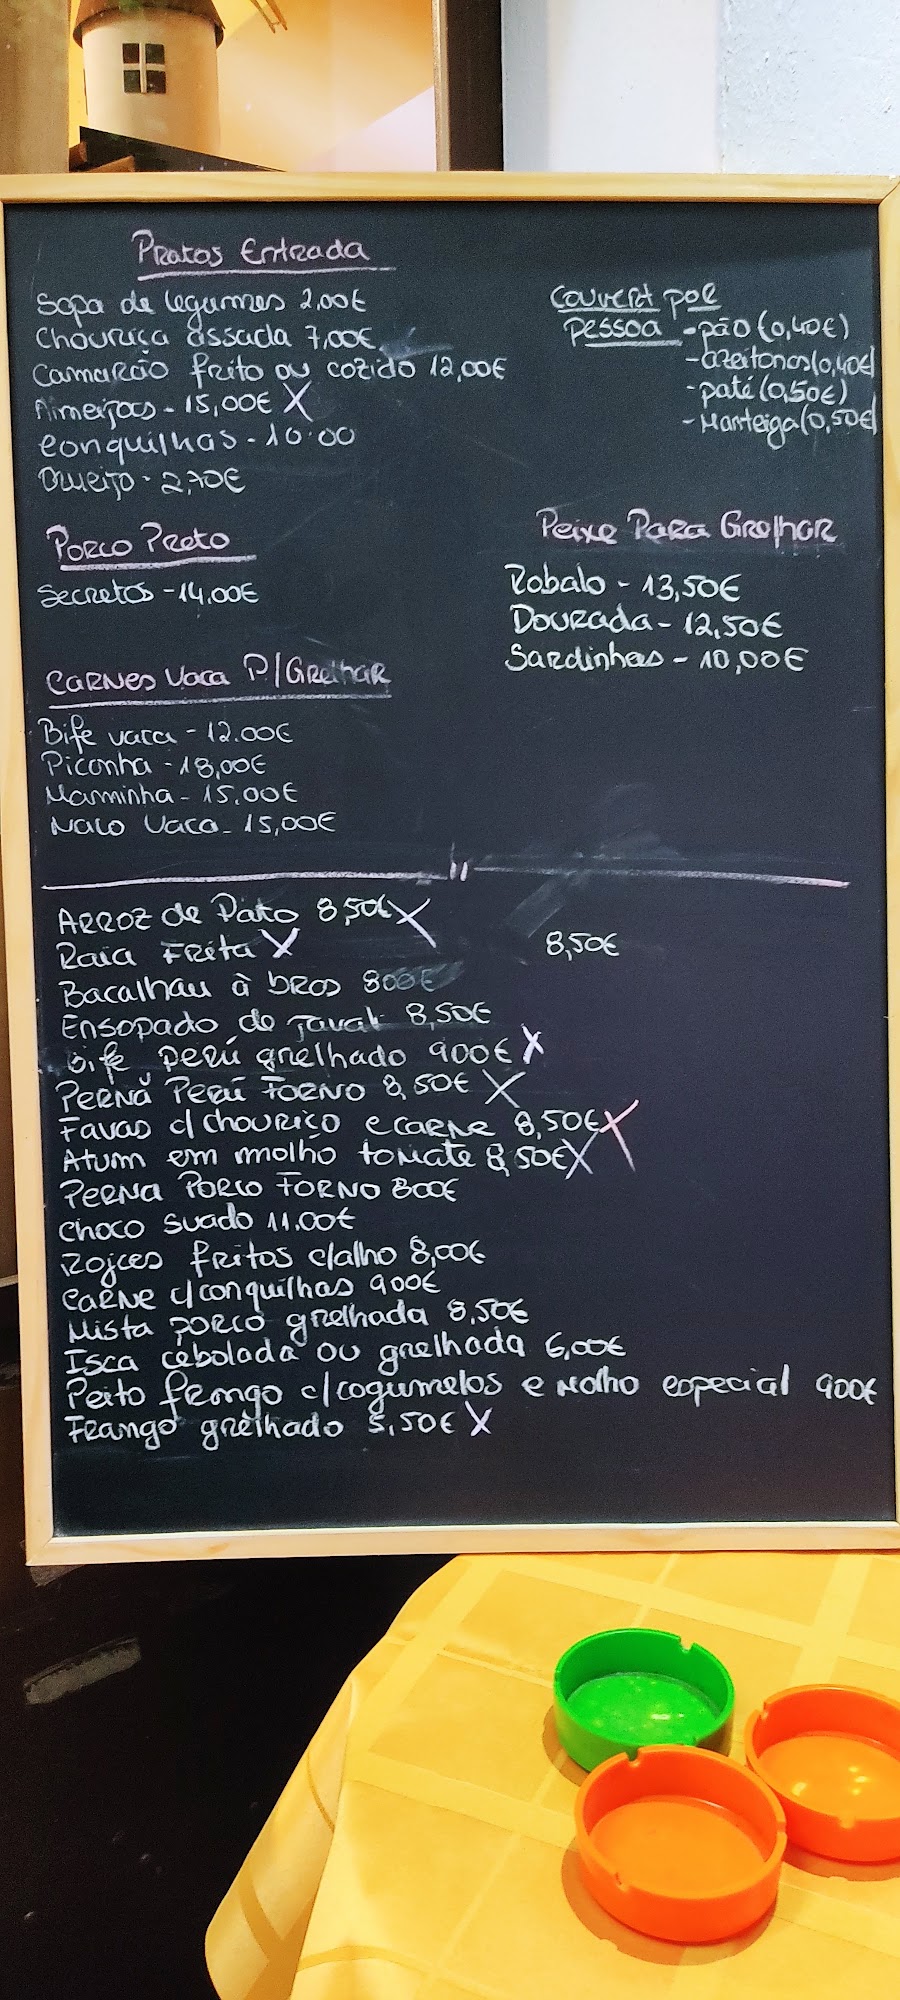 Pratos Entrada
Sopa de legumes 2,00€
Chouriça assada 7,00€
Camarão frito ou cozido 12,00€
Ameijoas - 15,00€ X
conquilhas - 10.00
Queijo - 2,70€
Couvert por
pessoa - pão (0,40€)
- azeitonas (0,40€)
- paté (0,50€)
- Manteiga (0,50€)
Porco Preto
Secretos - 14,00€
Peixe Para Grelhar
Robalo - 13,50€
Dourada - 12,50€
Sardinhas - 10,00€
Carnes Vaca P/Grelhar
Bife vaca - 12.00€
Piconha - 18,00€
Maminha - 15.00€
Naco Vaca - 15,00€
Arroz de Pato 8,50€ X
Raia Frita X 8,50€
Bacalhau à bros 800€
Ensopado de Javali 8,50€
Bife perú grelhado 900€ X
Perna Perú Forno 8,50€ X
Favas c/chouriço e carne 8,50€ X
Atum em molho tomate 8,50€ X
Perna Porco Forno 800€
Choco suado 11.00€
Rojoes fritos c/alho 8,00€
Carne c/conquilhas 900€
Mista porco grelhada 8,50€
Isca cebolada ou grelhada 6,00€
Peito frango c/cogumelos e Molho especial 900€
Frango grelhado 5,50€ X